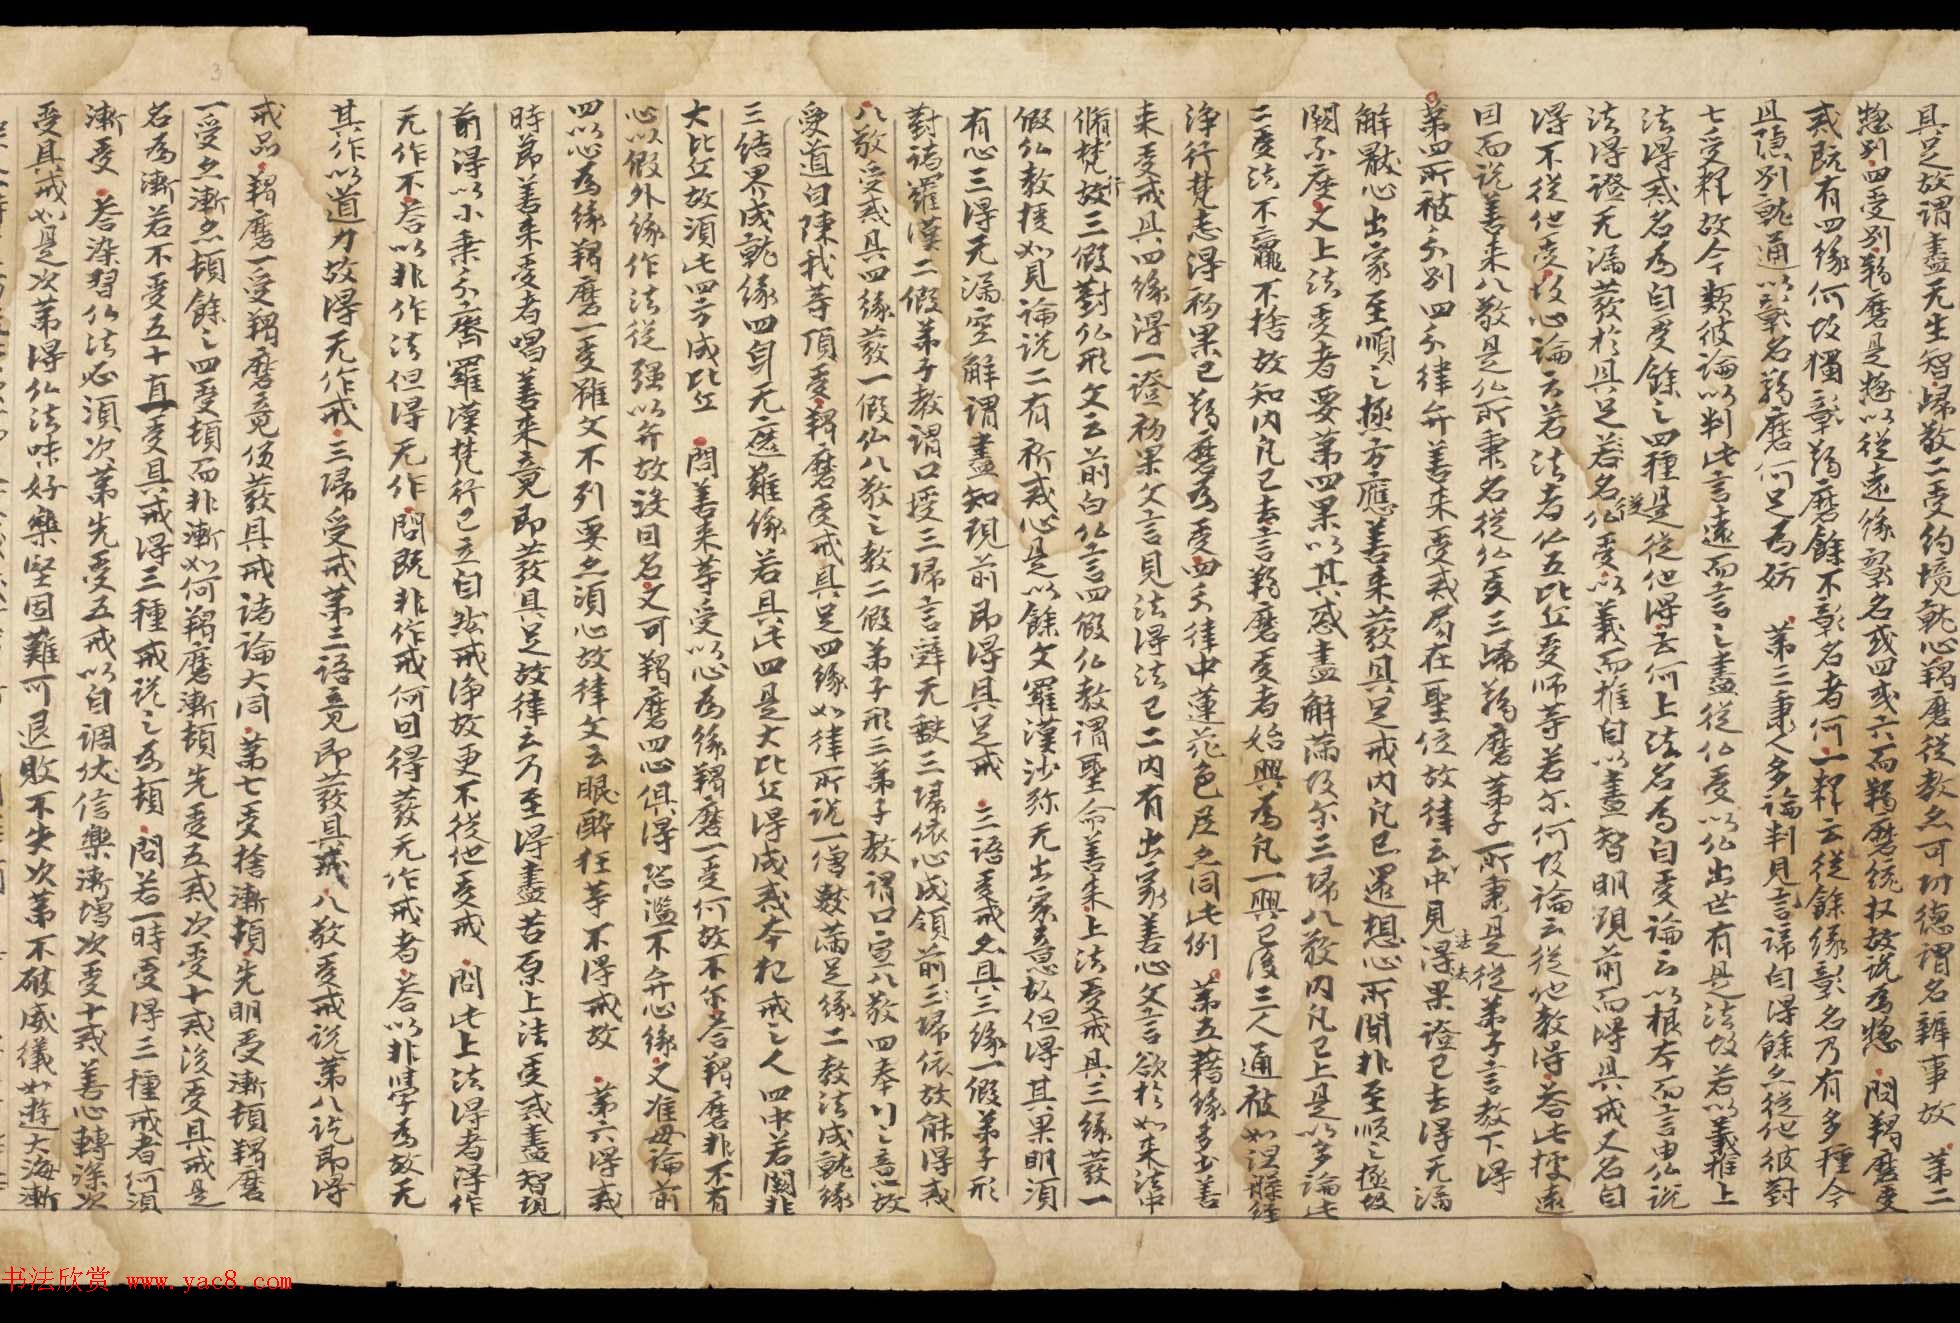 具足故謂盡无生智歸敬二受約境就心羯磨從教亦可功德謂名辦事故 第二
惣別四受別羯磨是惣以從遠緣製名或四或六而羯磨統收故說為惣 問羯磨受
戒既有四緣何故獨彰羯磨餘不彰名者何一釋云從餘緣彰名乃有多種今
且隱別就通以彰名羯磨何足為妨 第三秉人多論判見言諦自得餘亦從他彼對
七受釋故今類彼論以判此言遠而言之盡從仏受以仏出世有是法故若以義推上
法得戒名為自受餘之四種是從他得云何上法名為自受論云以根本而言由仏說
法得證无漏發於具足若名從仏受以義而推自以盡智明現前而得具戒又名自
得不從他受故心論云若法者仏五比丘受師等若尔何故論云從他教得答此據遠
因而說善来八敬是仏所秉名從仏受三歸羯磨弟子所秉是從弟子言教下得
第四所被分別四分律弁善来受戒局在聖位故律云中見法得法果證已去得无漏
解獸心出家至順之極方應善来發具足戒内凡已還想心所閒非至順之極故
闕不座又上法受者要第四果以其惑盡解滿故尔三歸八敬内凡已上是以多論此
二受法不麁不捨故知内凡已去言羯磨受者始興為凡一興已後三人通被如涅槃経
淨行梵志得初果已羯磨為受四分律中蓮花色尼亦同此例 第五藉緣多少善
来受戒具四緣得一證初果文言見法得法已二内有出家善心文言欲於如来法中
脩梵行故三假對仏形文云前白仏言四假仏教謂聖命善来上法受戒具三緣發一
假仏教授如見論說二有祈戒心是以餘文羅漢沙弥无出家意故但得其果明須
有心三得无漏空解謂盡知現前即得具足戒 三語受戒亦具三緣一假弟子形
對諸羅漢二假弟子教謂口授三歸言辞无缺三歸依心成領前三歸依故能得戒
八敬受戒具四緣發一假仏八敬之教二假弟子形三弟子教謂口宣八敬四奉行之意故
受道白陳我等頂受羯磨受戒具足四緣如律所說一僧數滿足緣二教法成就緣
三結界成就緣四身无遮難緣若具此四是大比丘得成戒本犯戒之人四中若闕非
大比丘故須此四方成比丘 問善来等受以心為緣羯磨一受何故不尔答羯磨非不有
心以假外緣作法從強以弁故没因名又可羯磨四心俱得恐濫不弁心緣又准母論前
四以心為緣羯磨一受雖文不列要亦須心故律文云眠醉狂等不得戒故 第六得戒
時節善来受者唱善来竟即發具足故律云乃至得盡苦原上法受戒盡智現
前得以小乘分齊羅漢梵行已立自然戒淨故更不從他受戒 問此上法得者得作
无作不答以非作法但得无作 問既非作戒何因得發无作戒者 答以非學為故无
其作以道力故得无作戒 三歸受戒第三語竟即發具戒 八敬受戒說第八訖即得
戒品 羯磨一受羯磨竟便發具戒諸論大同 第七受捨漸頓先明受漸頓羯磨
一受亦漸亦頓餘之四受頓而非漸如何羯磨漸頓先受五戒次受十戒後受具戒是
名為漸若不受五十直受具戒得三種戒說之為頓 問若一時受得三種戒者何須
漸受 答染習仏法必須次第先受五戒以自調伏信樂漸增次受十戒善心轉深次
受具戒如是次第得仏法味好樂堅固難可退敗不失次第不破威儀如遊大海漸
书法欣赏 www.yac8.com